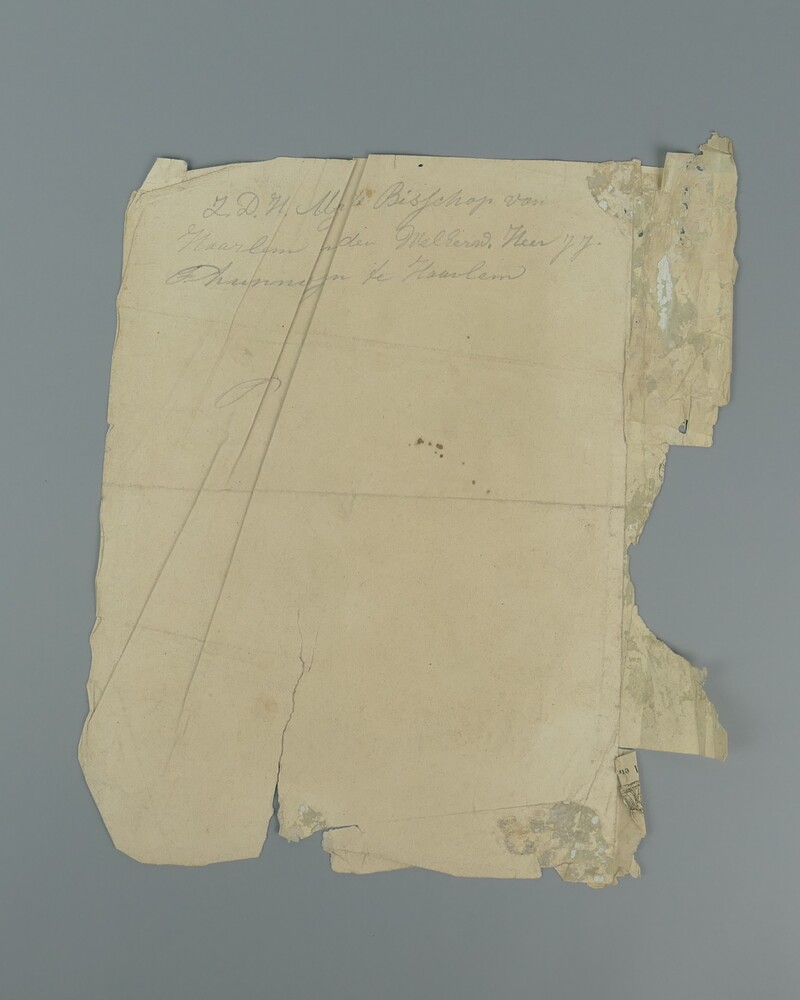 Z. D. H. Mgr de Bisschop van
Haarlem den WelEerw. Heer J. J.
te Haarlem